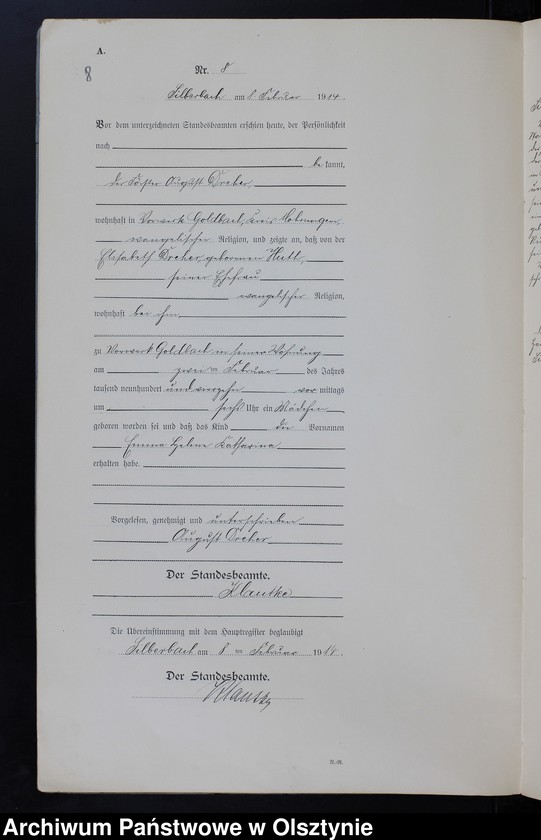 A.
8
Nr. 8
Silberbach am 8. Februar 1914.
Vor dem unterzeichneten Standesbeamten erschien heute, der Persönlichkeit
nach
be kannt,
der Förster August Dreher,
wohnhaft in Vorwerk Goldbach, Kreis Mohrungen,
evangelischer Religion, und zeigte an, daß von der
Elisabeth Dreher, geborenen Hutl,
seiner Ehefrau
evangelischer Religion,
wohnhaft bei ihm
zu Vorwerk Goldbach in seiner Wohnung
am zwei ten Februar des Jahres
tausend neunhundert und vierzehn vor mittags
um sechs Uhr ein Mädchen
geboren worden sei und daß das Kind die Vornamen
Emma Helene Katharina
erhalten habe.
Vorgelesen, genehmigt und unterschrieben
August Dreher
Der Standesbeamte.
Klautke
Die Übereinstimmung mit dem Hauptregister beglaubigt
Silberbach am 8 ten Februar 1914.
Der Standesbeamte.
Klautke
Archiwum Państwowe w Olsztynie